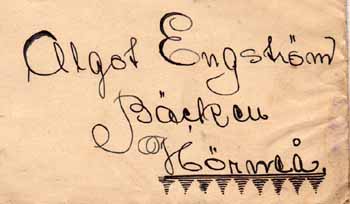 Algot Engström
Bäcken
Hörneå